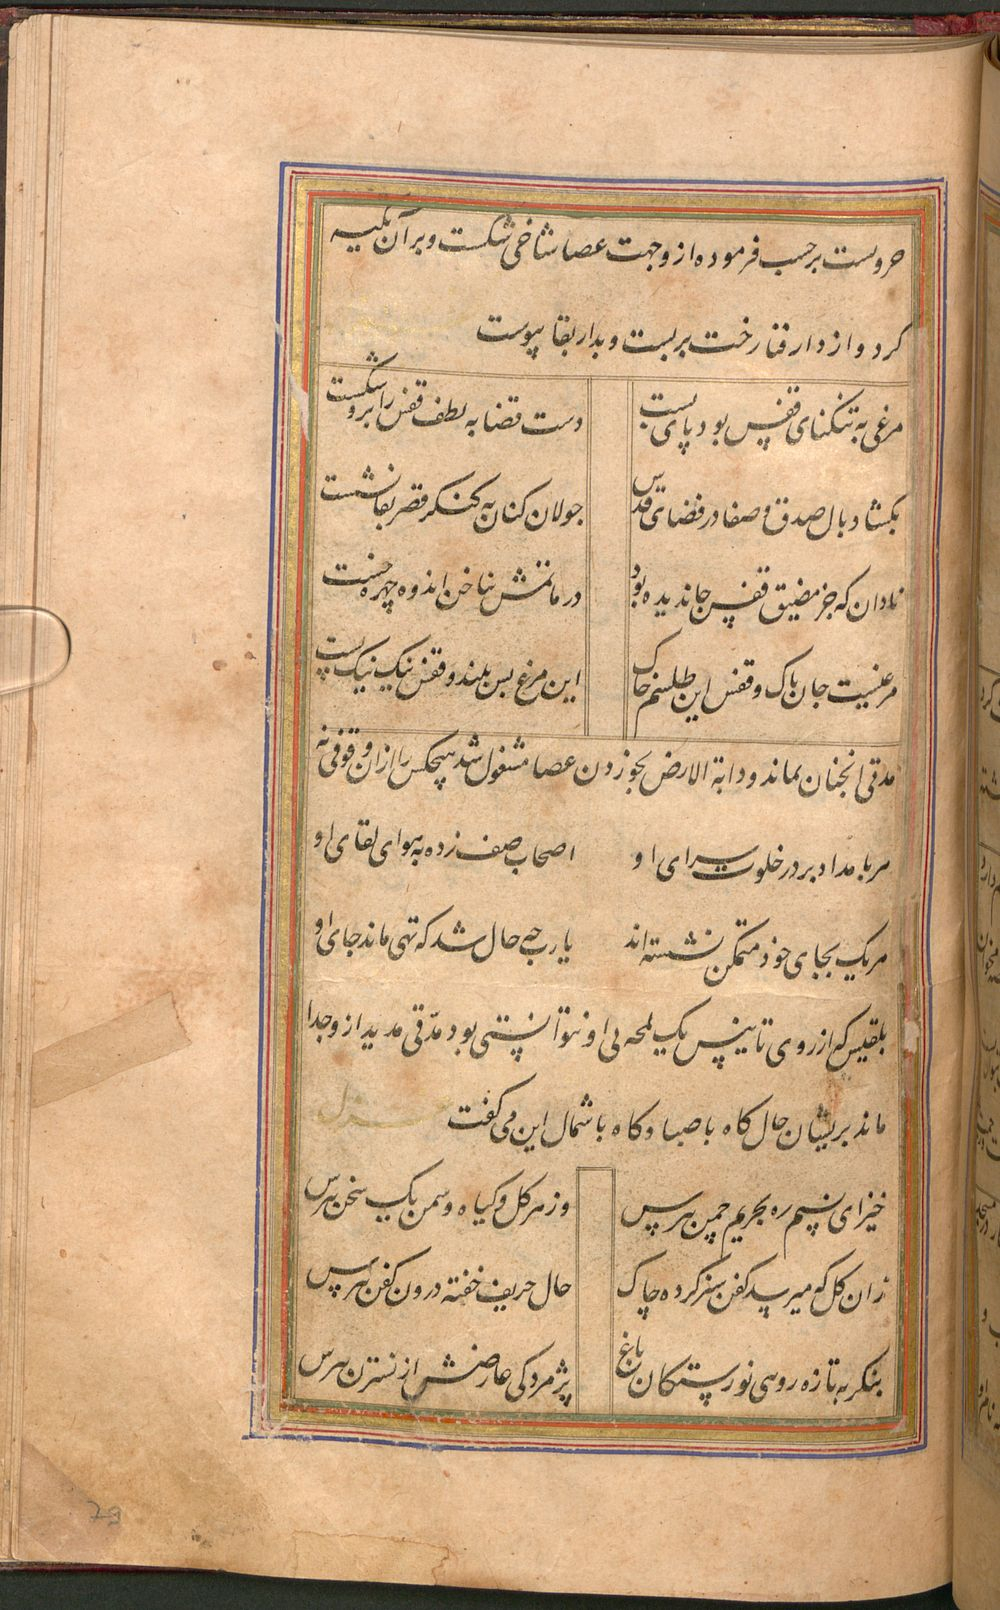 خروست برحسب فرموده از وجهت عصا شاخی شکست و بر آن تکیه
کرد و از دار فنا رخت بربست و بدار بقا پیوست
مرغی به تنکنای قفس بود پای بست دست قضا به لطف قفس را برو شکست
بکشاد بال صدق و صفا در فضای قدس جولان کنان به کنکر قصر بقا نشست
نادان که جز مضیق قفس جا ندیده بود در ماتمش بناخن اندوه چهره خست
مرغیست جان پاک و قفس این طلسم خاک این مرغ بس بلند و قفس نیک نیک پست
مدتی انجنان بماند و دابة الارض بخوردن عصا مشغول شد هیچکس را ازان وقوفی نه
هر بامداد بر در خلوت سرای او اصحاب صف زده به هوای لقای او
هر یک بجای خود متمکن نشسته اند یارب چه حال شد که تهی ماند جای او
بلقیس که از روی تانیس یک لمحه بی او نتوانستی بود مدتی مدید از و جدا
ماند پریشان حال کاه با صبا و کاه با شمال این می کفت
غزل
خیز ای نسیم ره بحریم چمن بپرس وز هر کل و کیاه و سمن یک سخن بپرس
زان کل که میرسد کفن سبز کرده چاک حال حریف خفته درون کفن بپرس
بنکر به تازه روی نورستکان باغ پژمردکی عارضش از نسترن بپرس
79